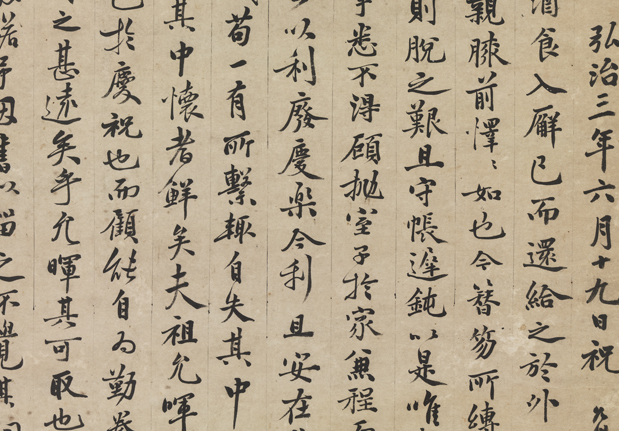 弘治三年六月十九日祝允
酒食入廨已而還給之於外
親膝前懌〻如也今簪笏所縛
則脫之艱且守帳遲鈍以是唯
悉不得顧拋室子於家兼程
以利廢慶樂今利且安在
苟一有所繫輙自失其中
其中懷者鮮矣夫祖允暉
於慶祝也而顧能自為勤
之甚遠矣乎允暉其可取也
若予因書以留之不覺其